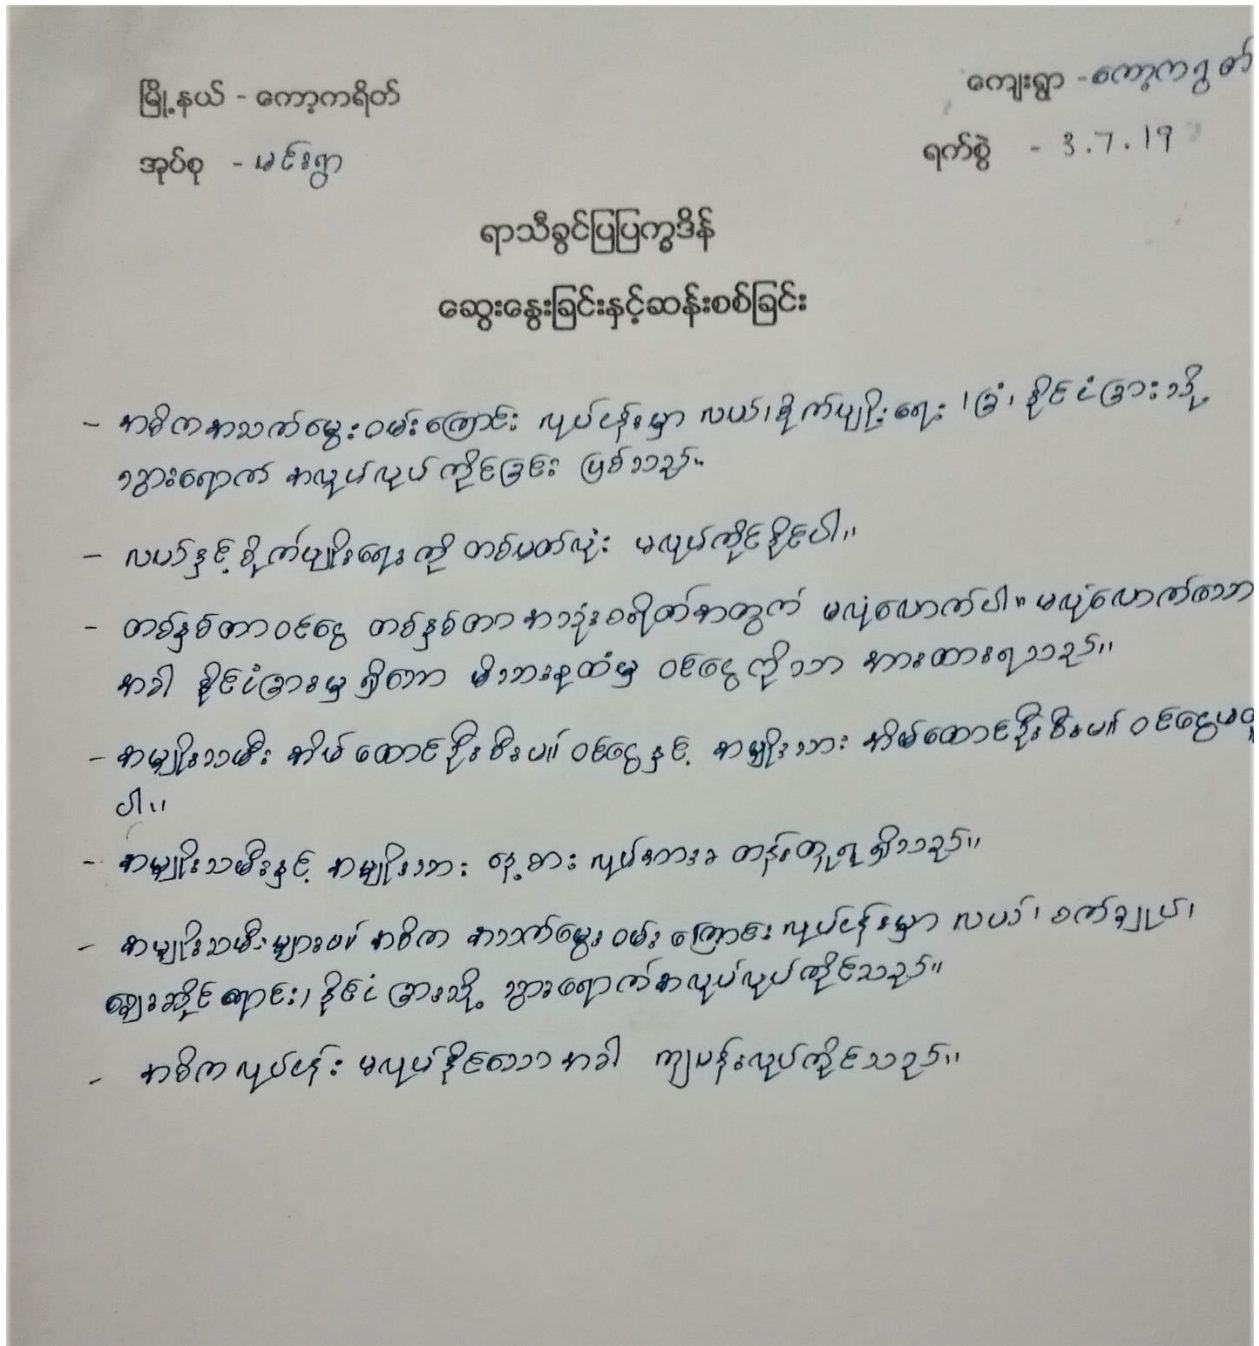 မြို့နယ် - ကော့ကရိတ်
ကျေးရွာ - ကော့ကရွတ်
အုပ်စု - မင်းရွာ
ရက်စွဲ - 3.7.19
ရာသီခွင်ပြပြက္ခဒိန်
ဆွေးနွေးခြင်းနှင့်ဆန်းစစ်ခြင်း
- အဓိကအသက်မွေးဝမ်းကြောင်း လုပ်ငန်းမှာ လယ်၊ စိုက်ပျိုးရေး ၊ ခြံ၊ နိုင်ငံခြားသို့
သွားရောက် အလုပ်လုပ်ကိုင်ခြင်း ဖြစ်သည်။
- လယ်နှင့် စိုက်ပျိုးရေးကို တစ်ပတ်လုံး မလုပ်ကိုင်နိုင်ပါ။
- တစ်နှစ်တာဝင်ငွေ တစ်နှစ်တာ အသုံးစရိတ်အတွက် မလုံလောက်ပါ။ မလုံလောက်သော
အခါ နိုင်ငံခြားမှ ရှိသော မိသားစုထံမှ ဝင်ငွေကိုသာ အားထားရသည်။
- အမျိုးသမီး အိမ်ထောင်ဦးစီး၏ ဝင်ငွေနှင့် အမျိုးသား အိမ်ထောင်ဦးစီး၏ ဝင်ငွေမတူ
ပါ။
- အမျိုးသမီးနှင့် အမျိုးသား နေ့စား လုပ်အားခ တန်းတူရရှိသည်။
- အမျိုးသမီးများ၏ အဓိက အသက်မွေးဝမ်းကြောင်း လုပ်ငန်းမှာ လယ်၊ စက်ချုပ်၊
ဈေးဆိုင်ရောင်း၊ နိုင်ငံခြားသို့ သွားရောက်အလုပ်လုပ်ကိုင်သည်။
- အဓိကလုပ်ငန်း မလုပ်နိုင်သောအခါ ကျပန်းလုပ်ကိုင်သည်။